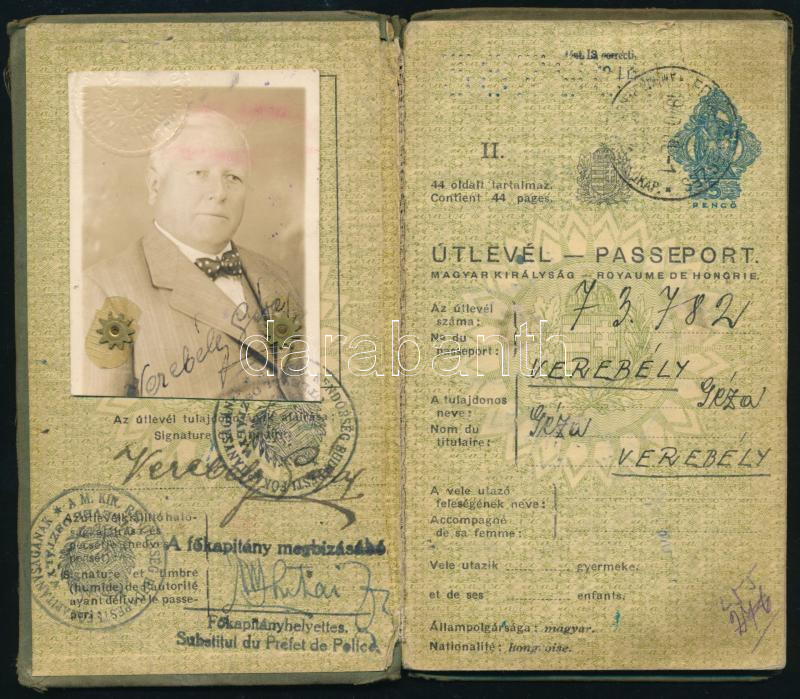 Verebély Géza
Az útlevél tulajdonosának aláírása:
Signature du
Verebély
Az útlevélkiállító ható-
ság aláírása és
pecsétje (nedves
pecsét):
Signature et timbre
(humide) de l'autorité
ayant délivré le passe-
port:
A főkapitány megbízásából
Főkapitányhelyettes.
Substitut du Préfet de Police.
II.
44 oldalt tartalmaz.
Contient 44 pages.
PENGŐ
ÚTLEVÉL — PASSEPORT.
MAGYAR KIRÁLYSÁG — ROYAUME DE HONGRIE.
Az útlevél
száma:
No du
passeport:
73.782
A tulajdonos
neve:
Nom du
titulaire:
VEREBÉLY Géza
Géza VEREBÉLY
A vele utazó
feleségének neve:
Accompagné
de sa femme:
Vele utazik gyermeke.
et de ses enfants.
Állampolgársága: magyar.
Nationalité: hongroise.
darabanth